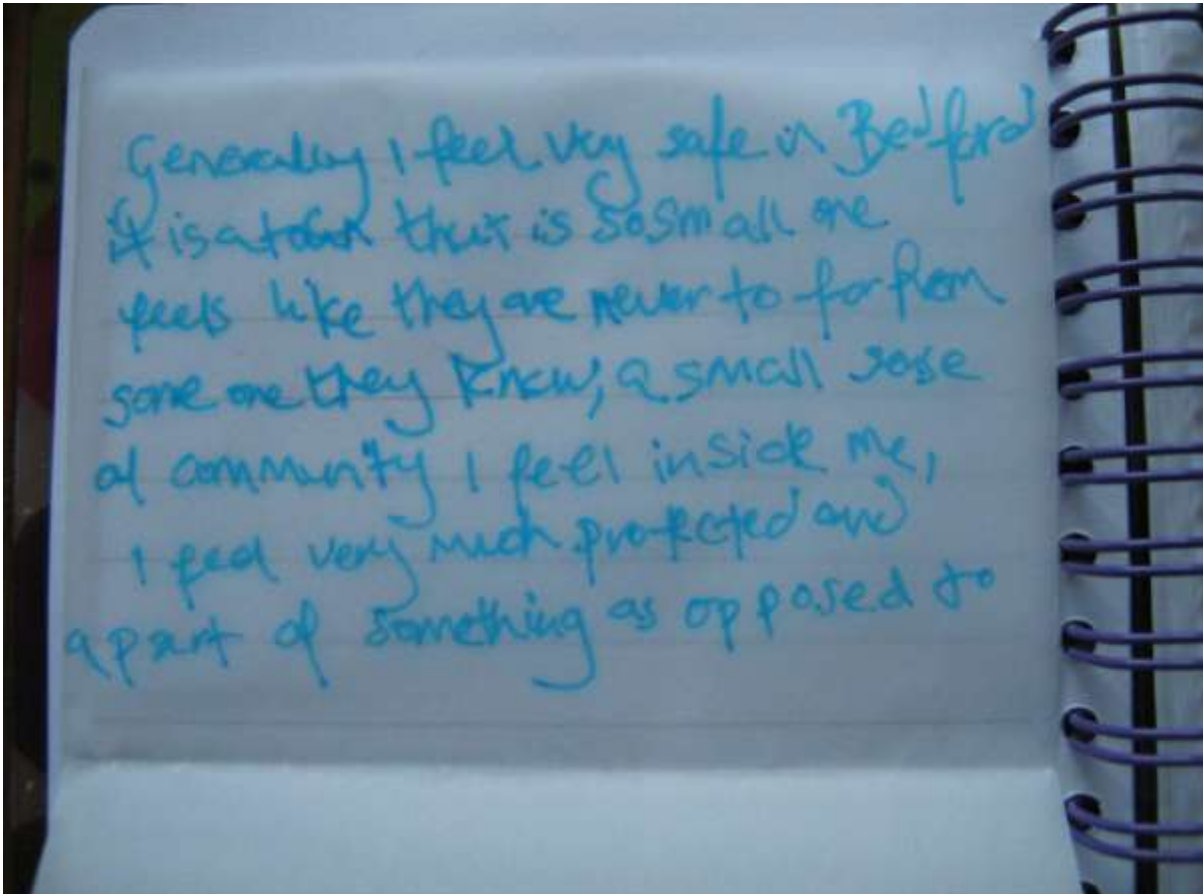 Generally I feel very safe in Bedford
it is a town that is so small one
feels like they are never to far from
some one they know, a small sose
of community I feel inside me,
I feel very much protected and
a part of something as opposed to